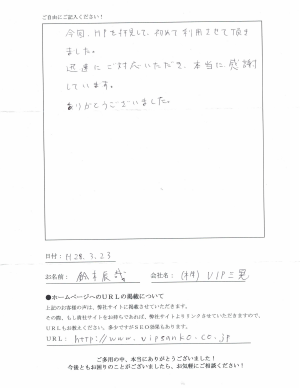 ご自由にご記入ください！
今回、HPを拝見して、初めて利用させて頂き
ました。
迅速にご対応いただき、本当に感謝
しています。
ありがとうございました。
日付： H28.3.23
お名前： 鈴木辰 会社名： (株) VIP三晃
●ホームページへのURLの掲載について
上記のお客様の声は、弊社サイトに掲載させていただきます。
その際、もし貴社サイトをお持ちであれば、弊社サイトよりリンクさせていただきますので、
URLもお教えください。多少ですがSEO効果もあります。
URL： http://www.vipsanko.co.jp
ご多用の中、本当にありがとうございました！
今後ともお困りのことがございましたら、お気軽にご相談ください！